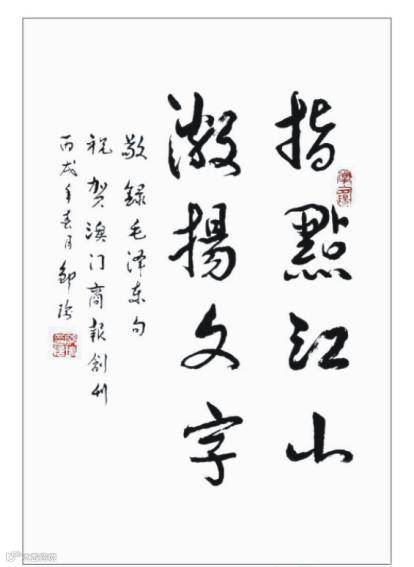 指點江山
激揚文字
敬録毛泽东句
祝贺澳门商報創刊
丙戌年春月邹瑜